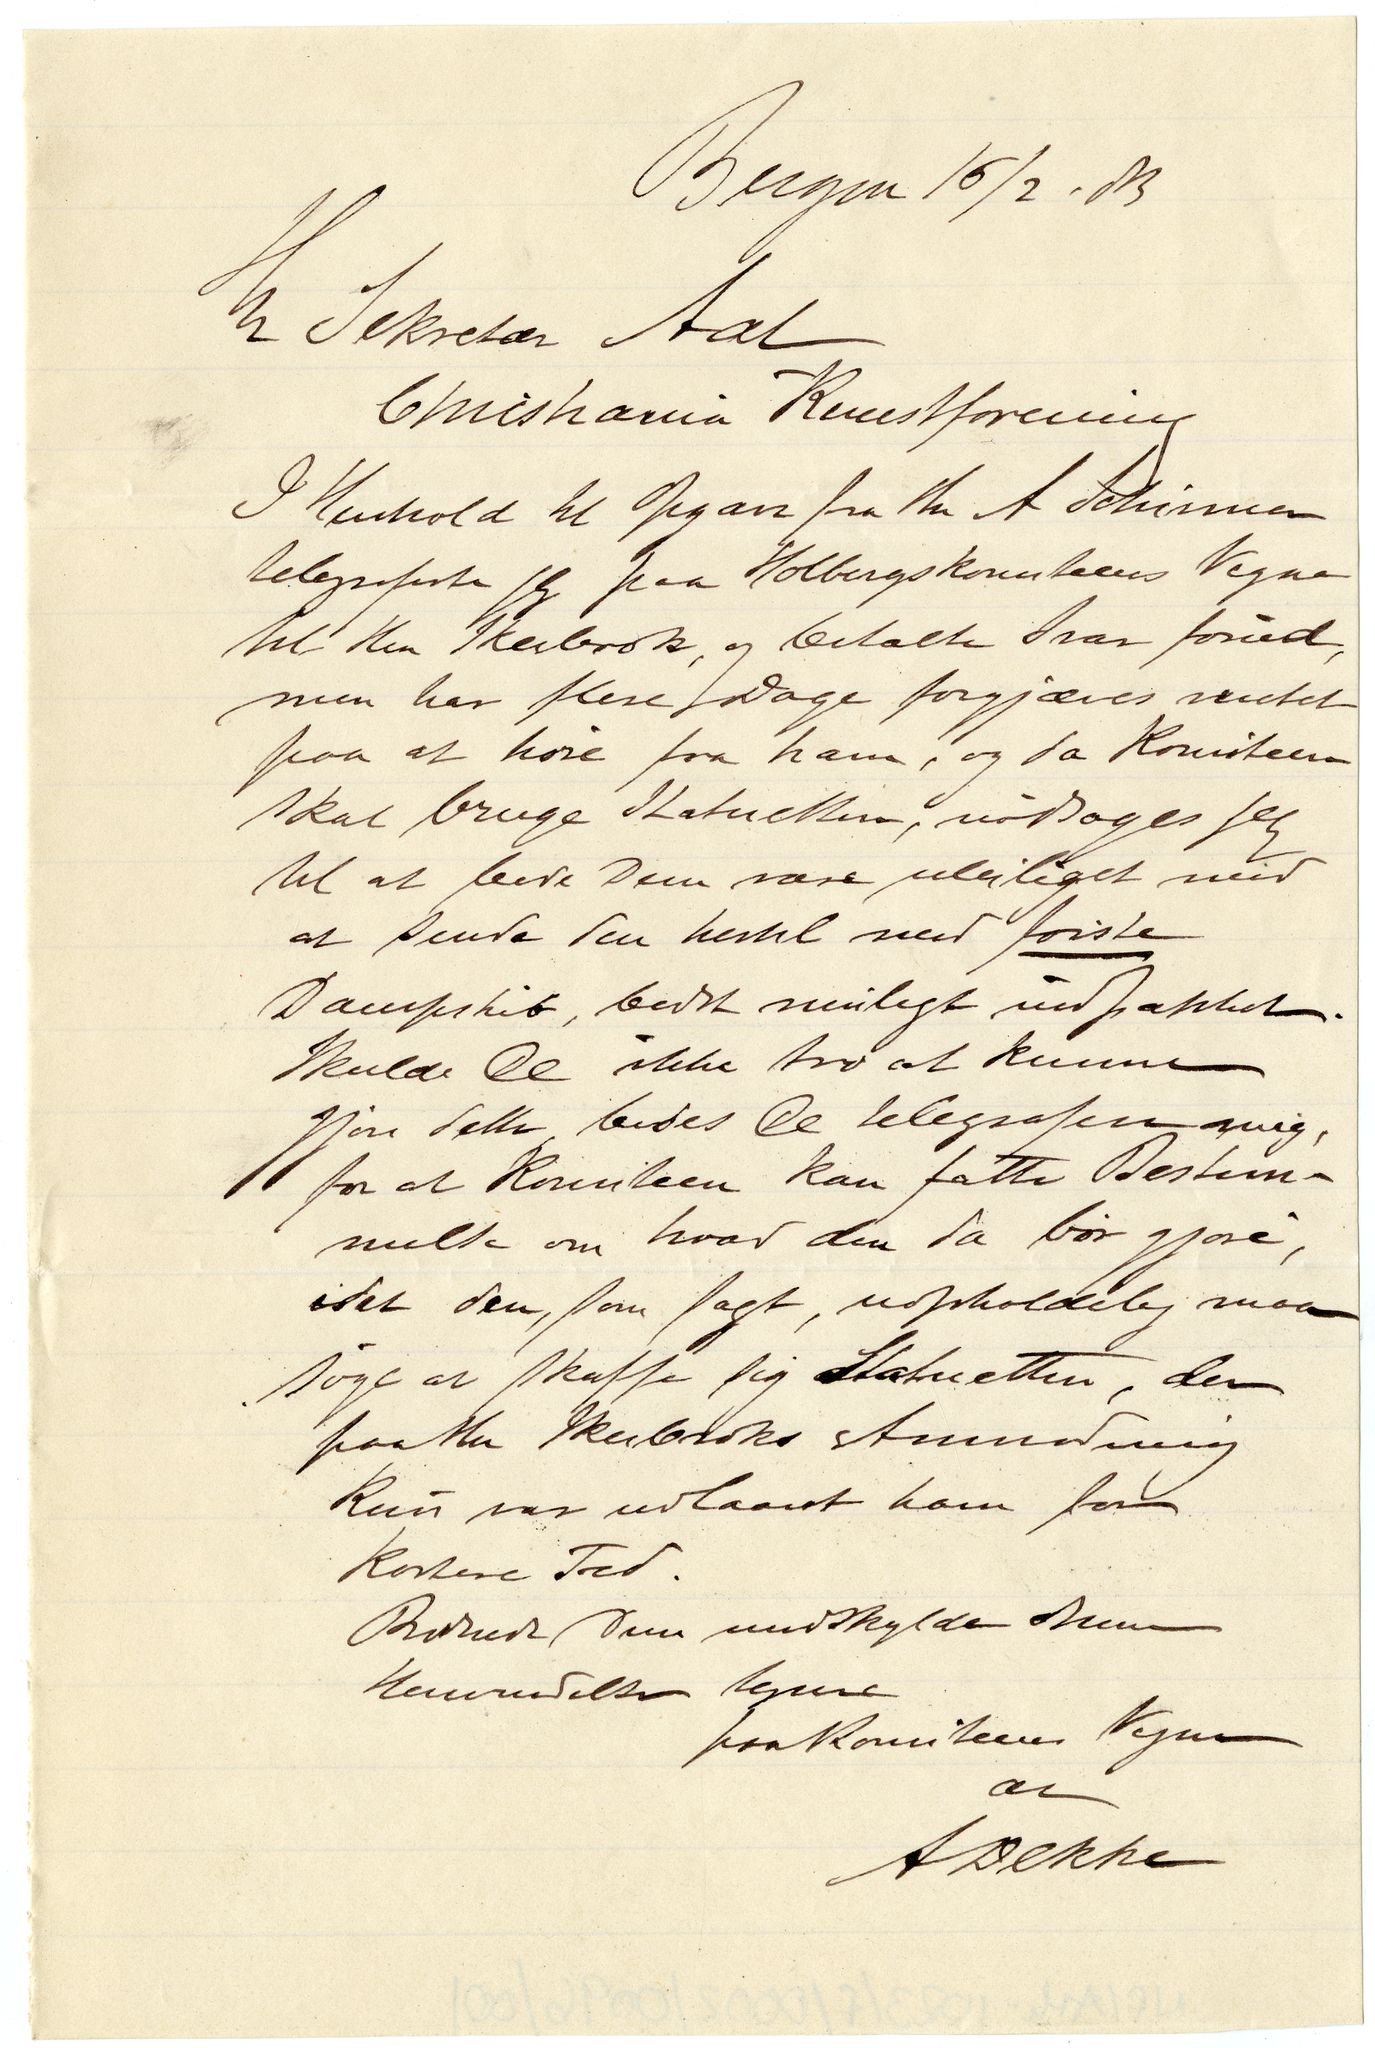 Bergen 16/2. 83
Hr Sekretær Aal
Christiania Kunstforening
I Henhold til Opgave fra Hr A Schirmer
telegraferte jeg paa Holbergskomiteens Vegne
til Hr Skeibrok, og betalte Svar forud,
men har flere Dage forgjæves ventet
paa at høre fra ham, og da Komiteen
skal bruge Statuetten, nødsages jeg
til at bede Dem være uleiliget med
at sende den hertil med første
Dampskib, bedst muligt indpakket.
Skulde De ikke tro at kunne
gjøre dette, bedes De telegrafere mig,
for at Komiteen kan fatte Bestem-
melse om hvad den da bør gjøre,
idet den, som sagt, uopholdelig maa
søge at skaffe sig Statuetten, der
paa Hr Skeibroks Anmodning
kun var udlaant ham for
kortere Tid.
Bedende Dem undskylde denne
Henvendelse tegner
paa Komiteens Vegne
ær
A Dekke